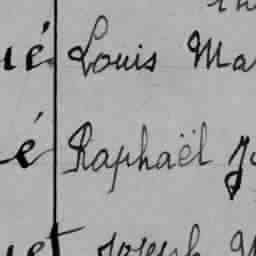 é Louis Ma
é Raphaël J
et Joseph